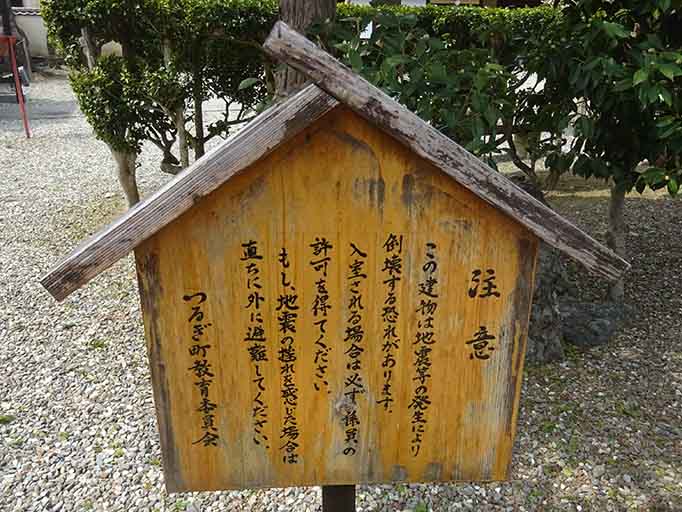 注意
この建物は地震等の発生により
倒壊する恐れがあります。
入室される場合は必ず係員の
許可を得てください。
もし、地震の揺れを感じた場合は
直ちに外に避難してください。
つるぎ町教育委員会